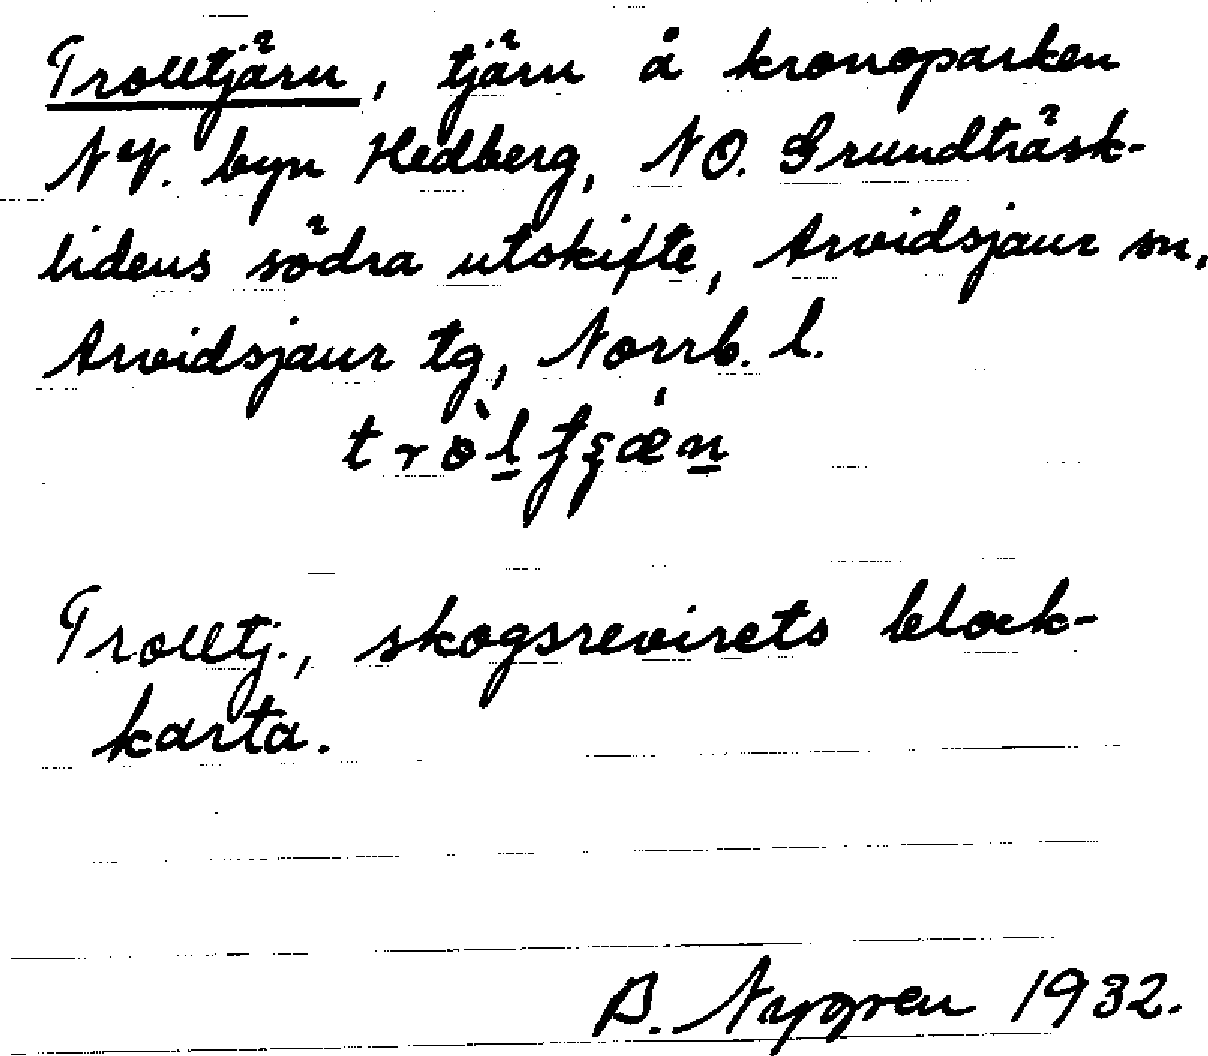 Trolltjärn, tjärn å kronoparken
NV. byn Hedberg, NO. Grundträsk-
lidens södra utskifte, Arvidsjaur sn,
Arvidsjaur tg, Norrb. l.
Trolltj., skogsrevirets block-
karta.
B. Nygren 1932.